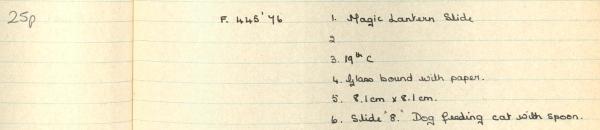 25p
F. 445'76 1. Magic Lantern Slide
2
3. 19th C
4. Glass bound with paper.
5. 8.1cm x 8.1cm.
6. Slide "8." Dog feeding cat with spoon.